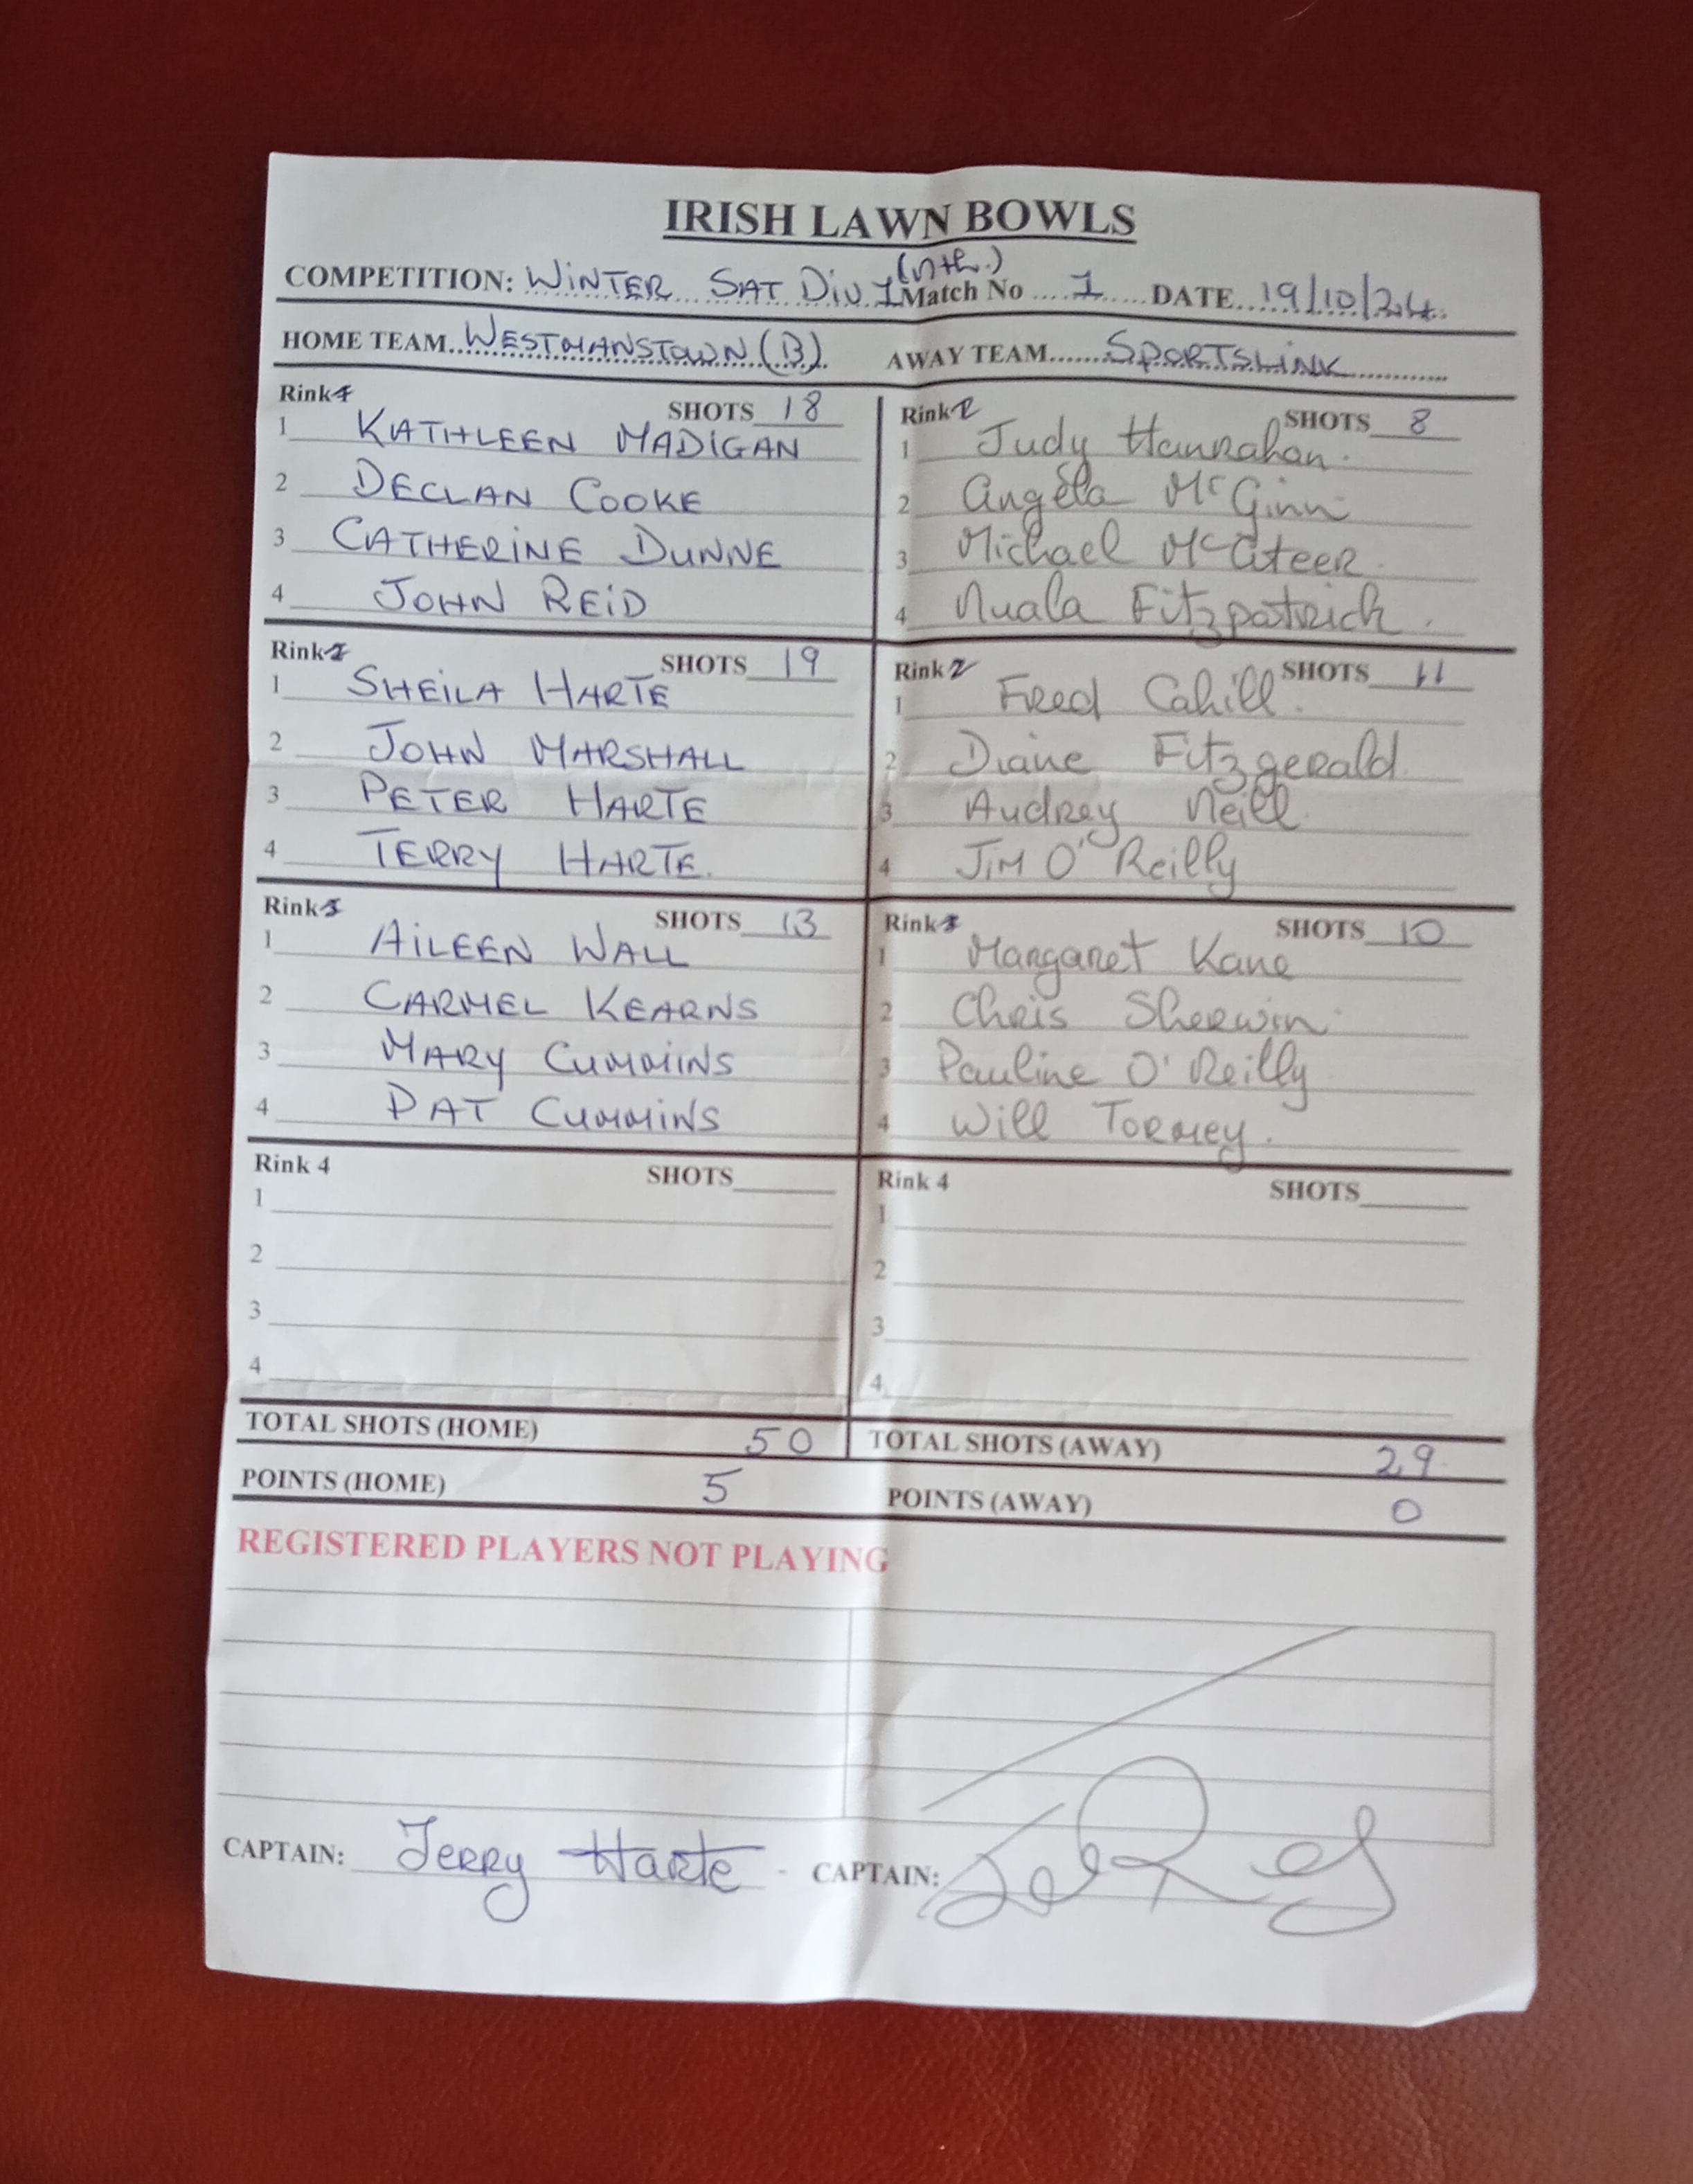 IRISH LAWN BOWLS
COMPETITION: WINTER SAT DIV 1 (nth.) Match No 1 DATE 19/10/24
HOME TEAM WESTMANSTOWN (B) AWAY TEAM SPORTSLINK
Rink SHOTS 18
1 KATHLEEN MADIGAN
2 DECLAN COOKE
3 CATHERINE DUNNE
4 JOHN REID
Rink SHOTS 8
1 Judy Hanrahan.
2 Angela McGinn
3 Michael McAteer
4 Nuala Fitzpatrick.
Rink SHOTS 19
1 SHEILA HARTE
2 JOHN MARSHALL
3 PETER HARTE
4 TERRY HARTE.
Rink SHOTS 11
1 Fred Cahill.
2 Diane Fitzgerald
3 Audrey Neill
4 JIM O'Reilly
Rink SHOTS 13
1 AILEEN WALL
2 CARMEL KEARNS
3 MARY CUMMINS
4 PAT CUMMINS
Rink SHOTS 10
1 Margaret Kane
2 Chris Sherwin
3 Pauline O'Reilly
4 Will Tormey.
Rink 4 SHOTS
1
2
3
4
Rink 4 SHOTS
1
2
3
4
TOTAL SHOTS (HOME) 50 TOTAL SHOTS (AWAY) 29
POINTS (HOME) 5 POINTS (AWAY) 0
REGISTERED PLAYERS NOT PLAYING
CAPTAIN: Terry Harte - CAPTAIN: